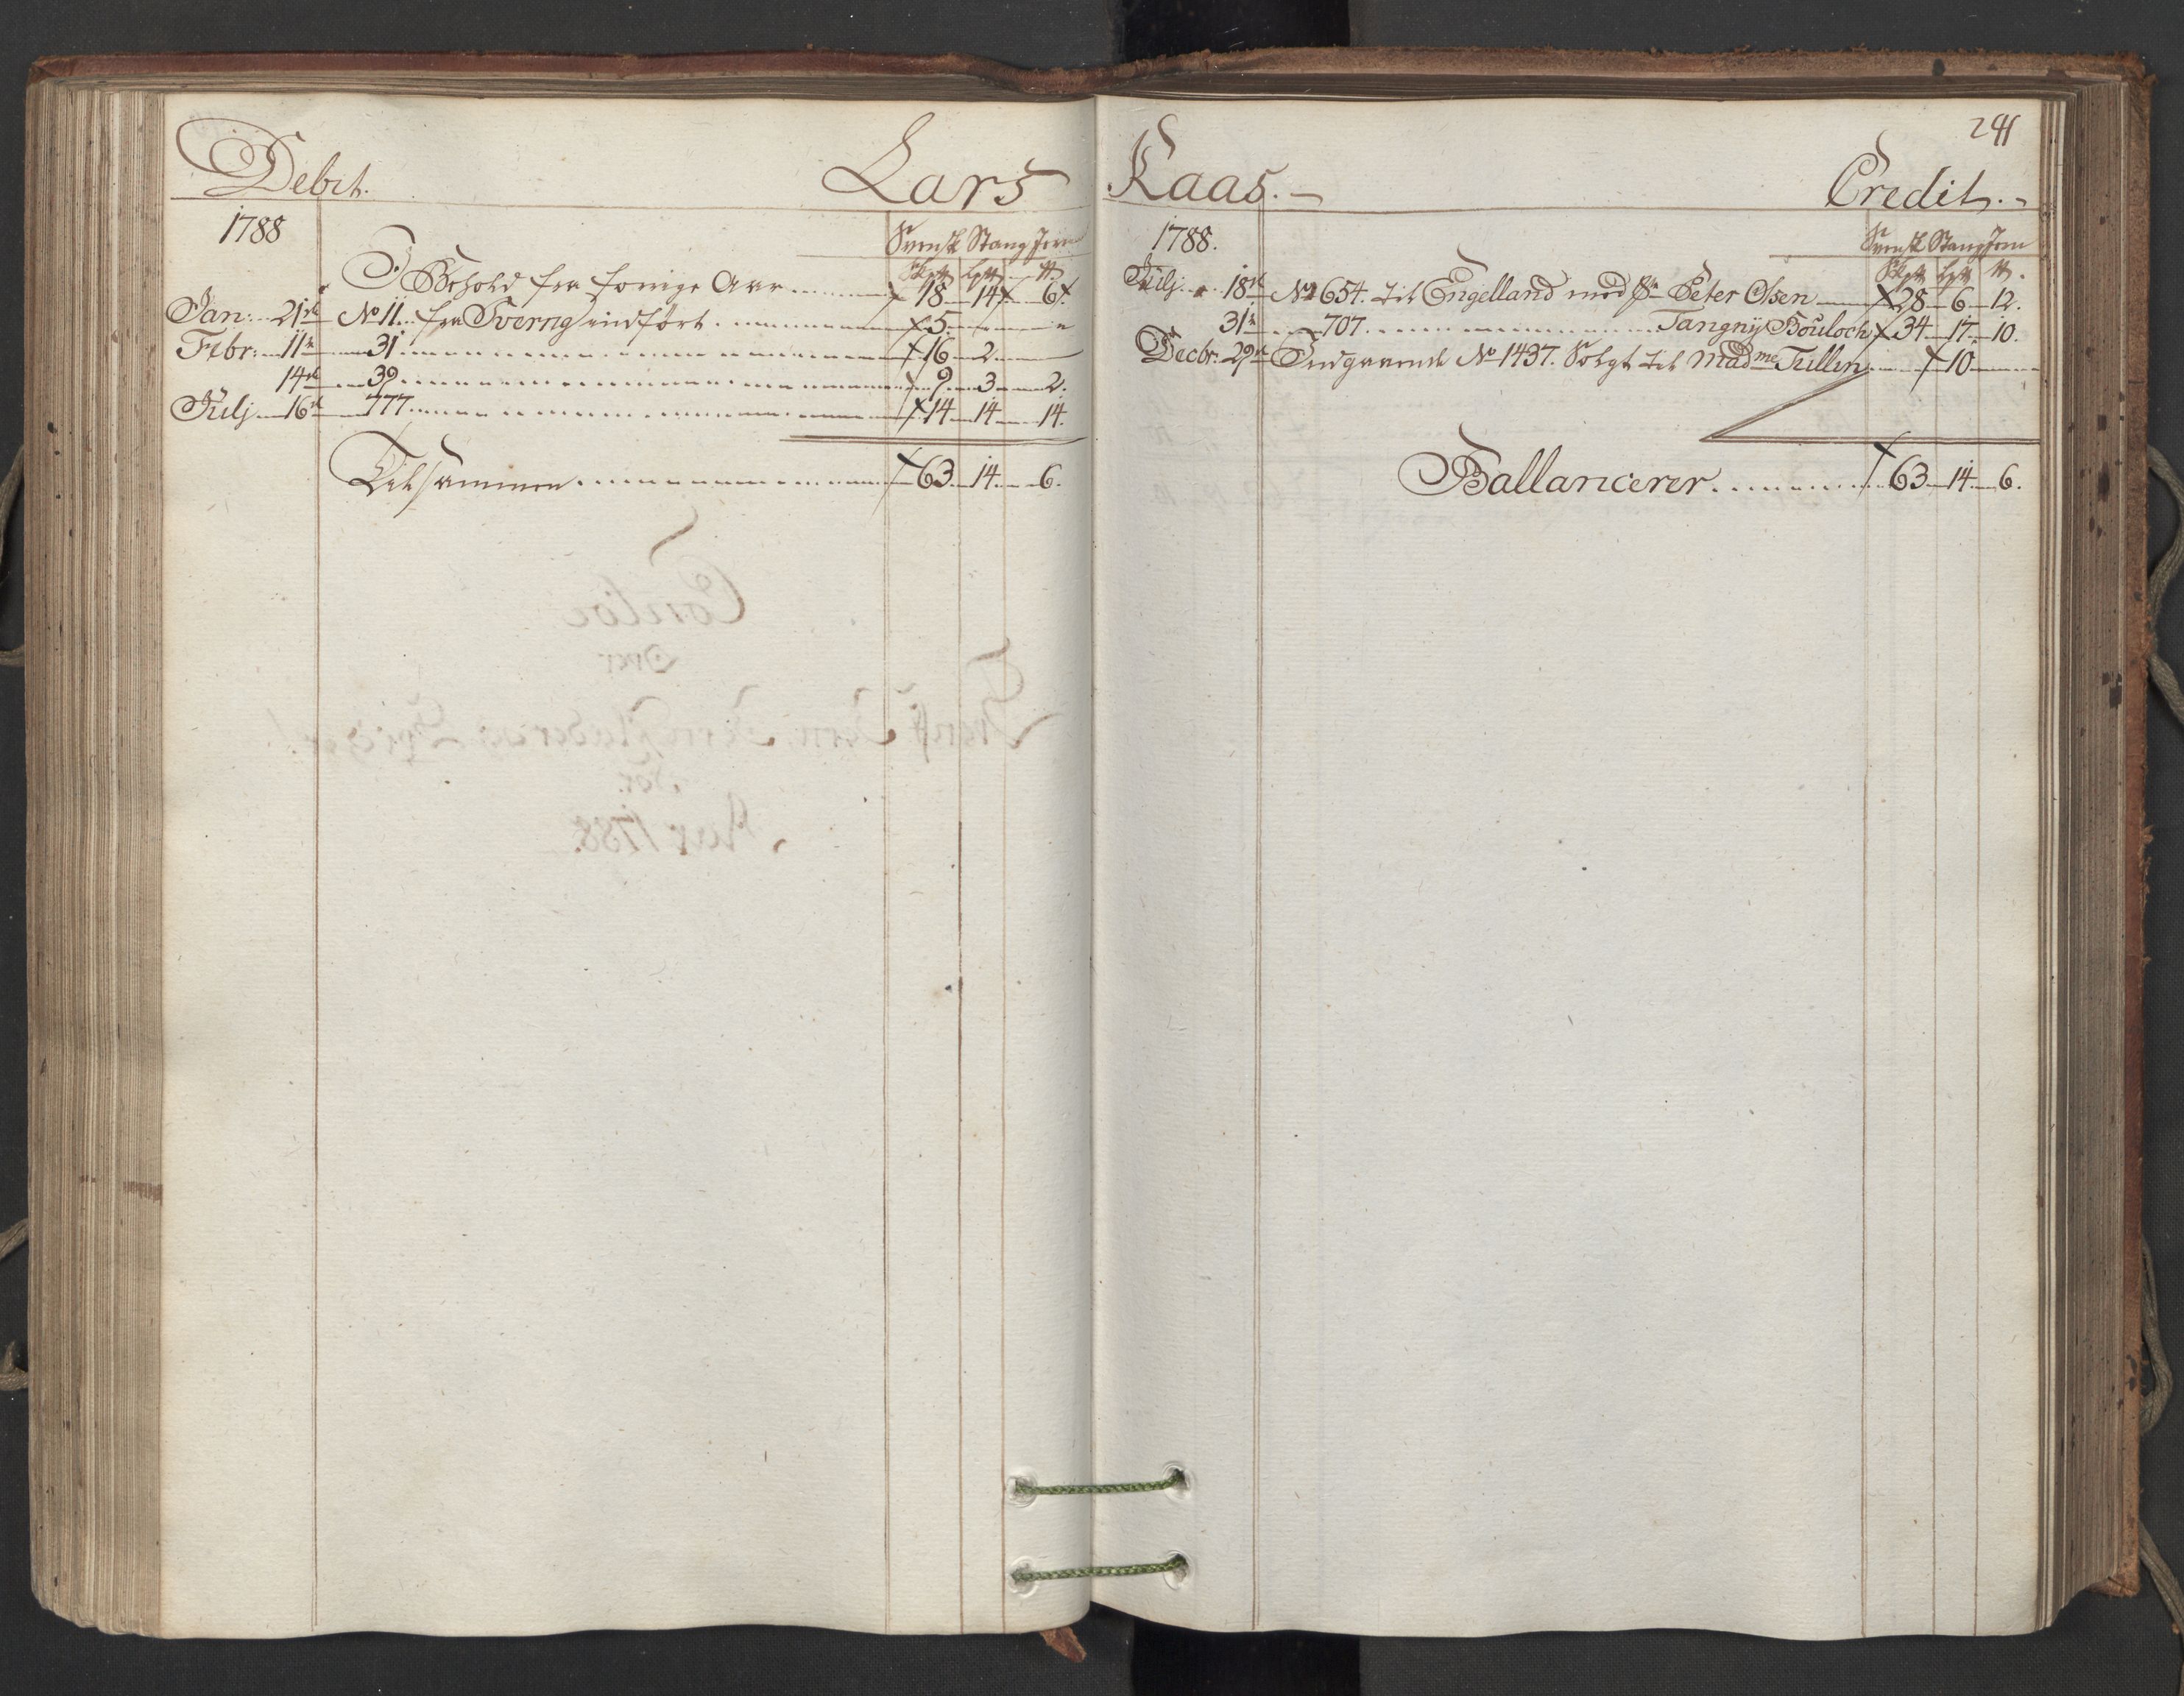 Debit. Lars
1788
Svensk Stang Jern
Skp℔ Lp℔ ℔
I Behold fra forrige Aar 18 14 6.
Jan: 21de No 11. fra Sverrig indført 5
Febr: 11te 31 16 2
14de 39 9 3 2.
Julj 16de 777 14 14 14.
Tilsammen 63 14 6.
Kaas. Credit.
241
1788.
Svensk Stang Jern
Skp℔ Lp℔ ℔.
Julj 18de No 654. til Engelland med Peter Olsen 28 6 12.
31te 707 Tangnÿ Bouloch 34 17 10.
Decbr: 29de Indgaaende No 1437. Solgt til Madme Tullin 10
Ballancerer 63 14 6.